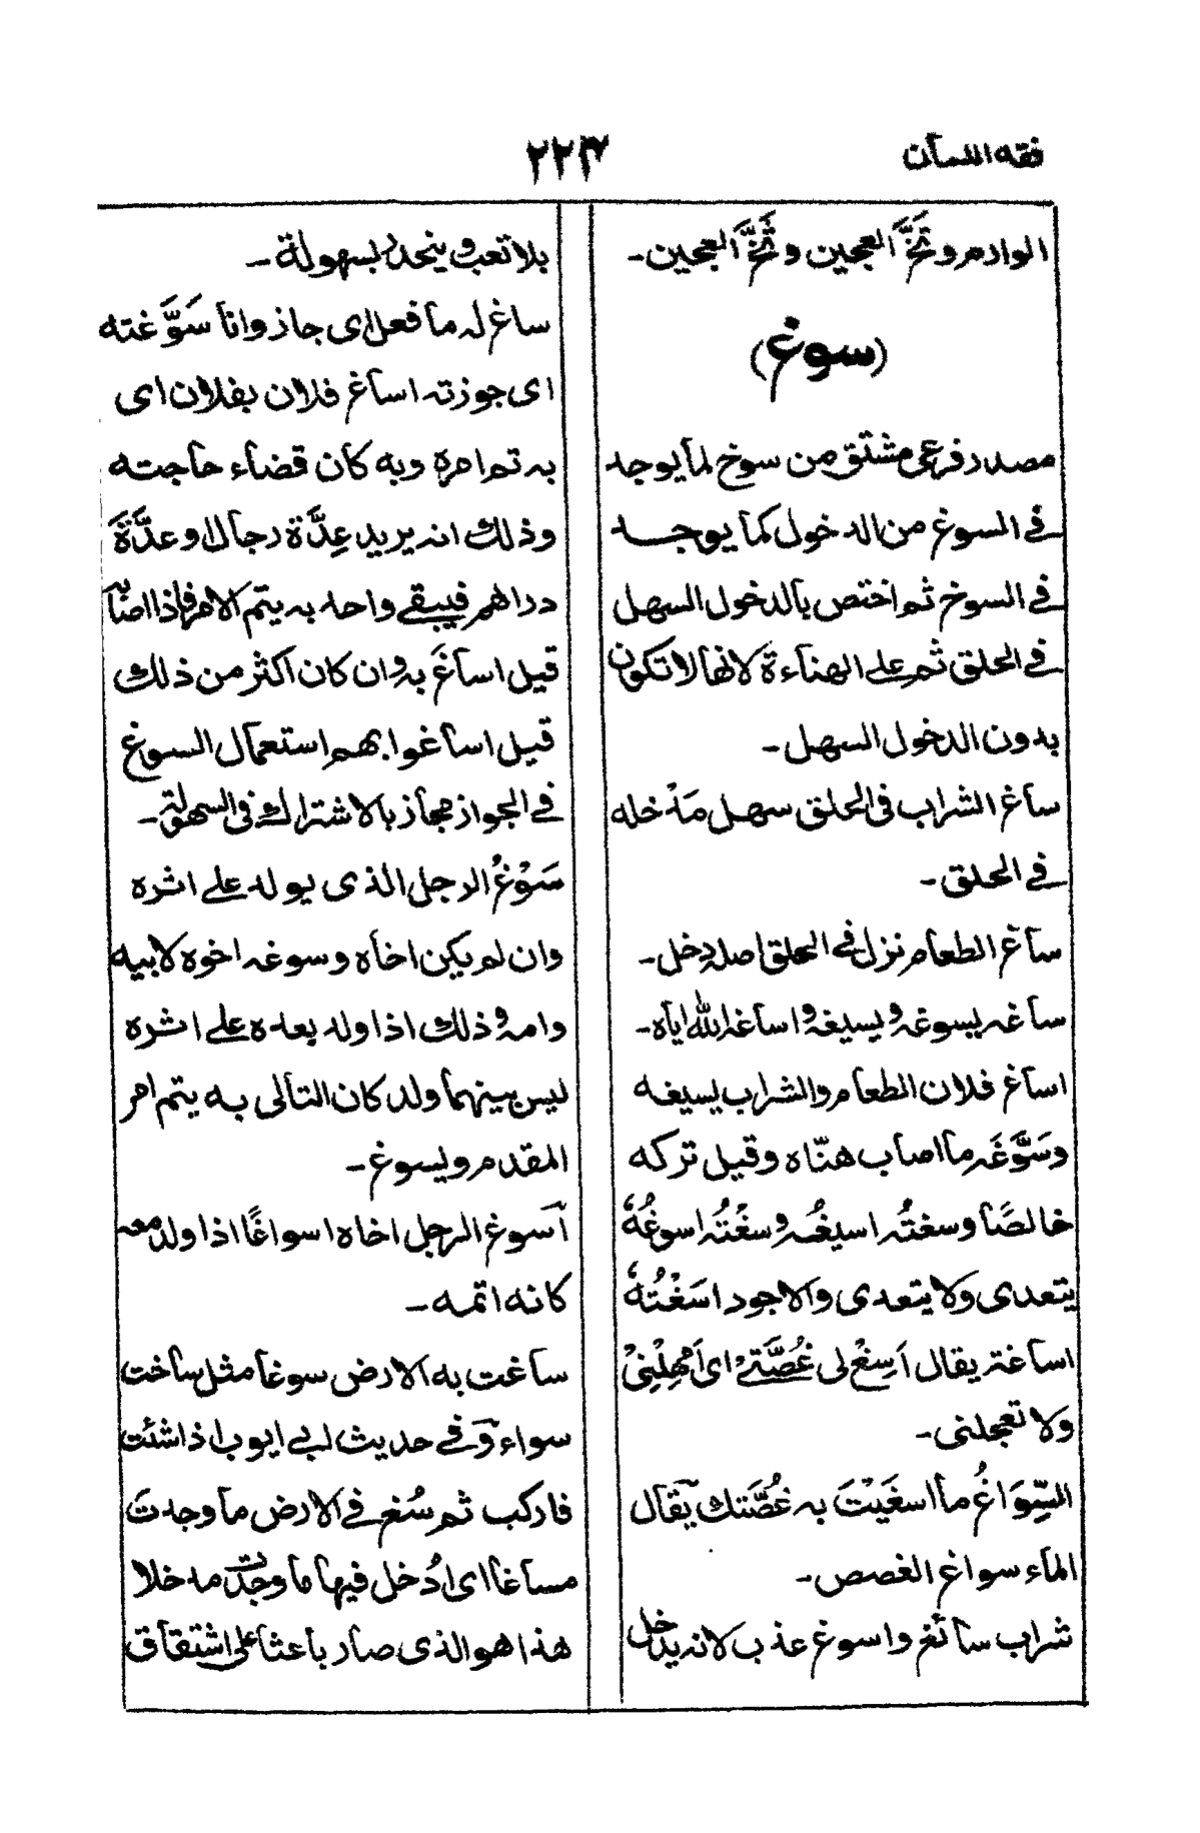 فقه اللسان
۲۲۴
الوادم وتَخَّ العجين وتَخَّ العجين ـ
(سوغ)
مصدر فرعی مشتق من سوخ لما يوجد
فے السوغ من الدخول كما يوجد
فے السوخ ثم اختص بالدخول السهل
فے الحلق ثم علے الهناءة لانها لا تكون
بدون الدخول السهل ـ
ساغ الشراب فی الحلق سهل مَدْخله
فے الحلق ـ
ساغ الطعام نزل فے الحلق اصله دخل ـ
ساغه يسوغه ويسيغه واساغه الله اياه ـ
اساغ فلان الطعام والشراب يسيغه
وسَوَّغَه ما اصاب هنّاه وقيل تركه
خالصًا وسغتُه اسيغُه وسغْتُه اسوغُهٗ
يتعدى ولا يتعدى والاجود اسَغْتُهٗ
اساغة يقال اَسِغْ لى غُصَّتےْ اى اَمْهِلْنِیْ
ولا تعجلنى ـ
السِّوَاغُ ما اسغَيْتَ به غُصَّتك يقال
الماء سواغ الغصص ـ
شراب سائغ واسوغ عذب لانه يدخل
بلا تعب وينحدر بسهولة ـ
ساغ له ما فعل اى جاز وانا سَوَّغته
اى جوزته اساغ فلان بفلان اى
به تم امره وبه كان قضاء حاجته
وذلك انه يريد عِدَّة رجال او عدَّةَ
دراهم فيبقے واحد به يتم الامر فاذا اصابه
قيل اساغَ به وان كان اكثر من ذلك
قيل اساغوا بهم استعمال السوغ
فے الجواز مجاز بالاشتراك فی السهولة ـ
سَوْغُ الرجل الذى يولد علے اثره
وان لم يكن اخاه وسوغه اخوه لابيه
وامه وذلك اذا ولد بعده علے اثره
ليس بينهما ولد كان التالى به يتم امر
المقدم ويسوغ ـ
اَسوغ الرجل اخاه اسواغًا اذا ولد معه
كانه اتمه ـ
ساغت به الارض سوغا مثل ساخت
سواء وفے حديث ابے ايوب اذا شئت
فاركب ثم سُغ فے الارض ما وجدتَ
مساغا اى ادُخل فيها ما وجدت مدخلا
هذا هو الذى صار باعثا علی اشتقاق